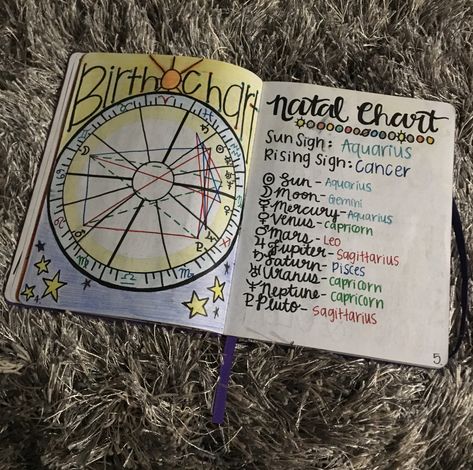 Birth Chart
Natal Chart
Sun Sign: Aquarius
Rising Sign: Cancer
☉ Sun - Aquarius
☽ Moon - Gemini
☿ Mercury - Aquarius
♀ Venus - Capricorn
♂ Mars - Leo
♃ Jupiter - Sagittarius
♄ Saturn - Pisces
♅ Uranus - Capricorn
♆ Neptune - Capricorn
♇ Pluto - Sagittarius
5